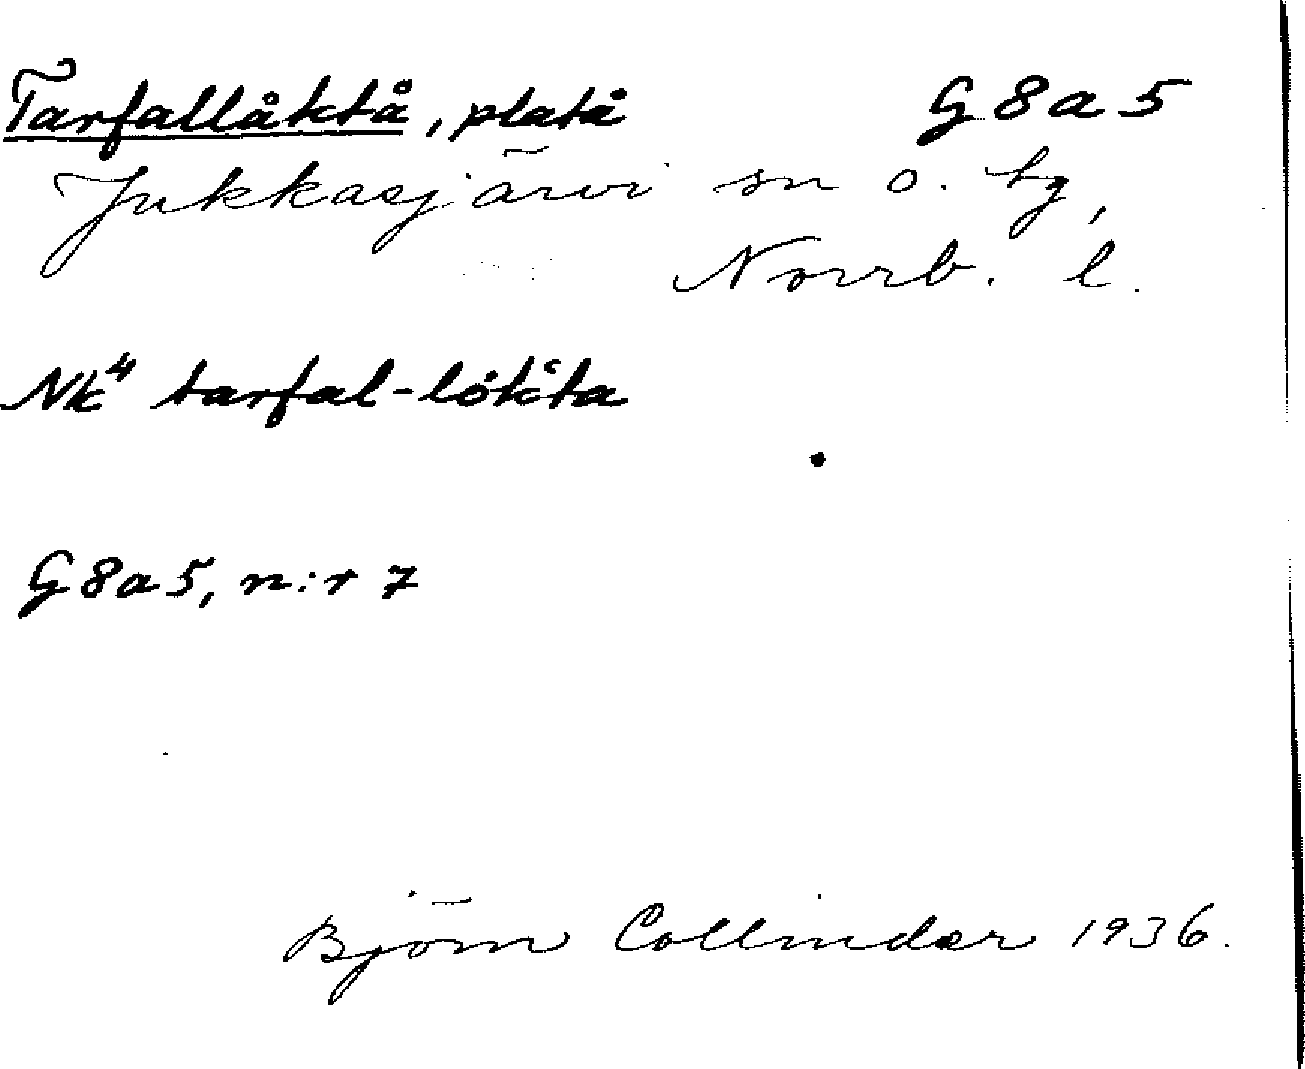 Tarfallåktå, platå G8a5
Jukkasjärvi sn o. tg,
Norrb. l.
Nk⁴ tarfal-lòk῾ta
G8a5, n:r 7
Björn Collinder 1936.